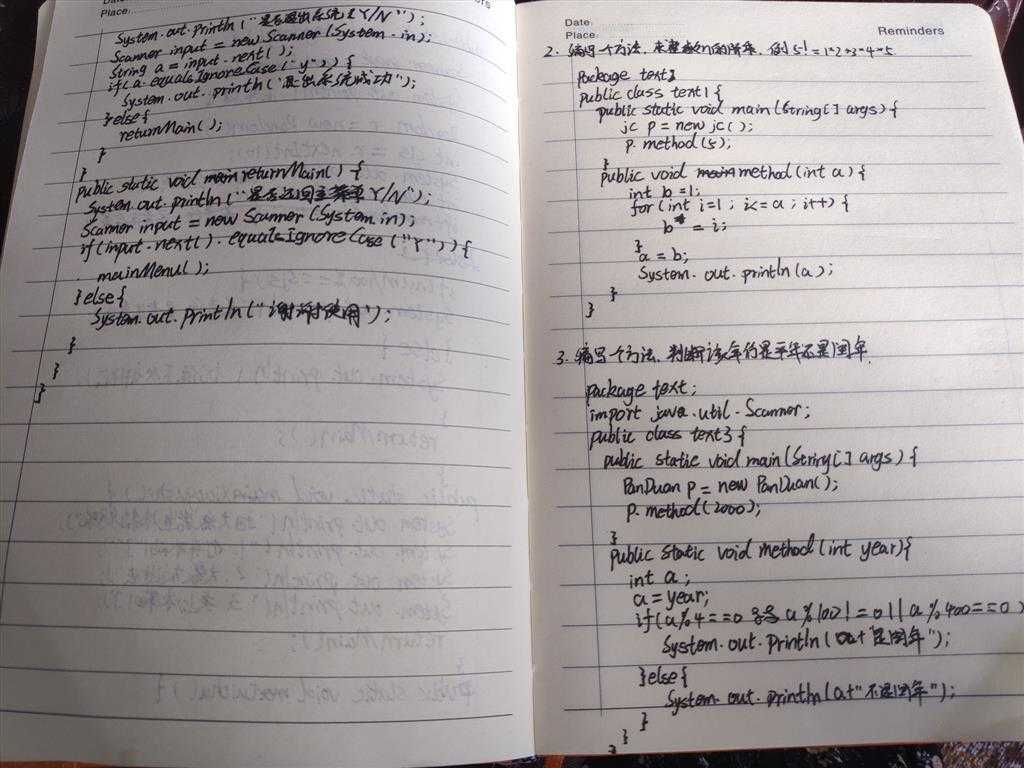 Place:
System.out.Println("是否退出系统Y/N");
Scanner input = new Scanner(System.in);
String a = input.next();
if(a.equalsIgnoreCase("y")){
System.out.println("退出系统成功");
}else{
returnMain();
}
}
public static void returnMain(){
System.out.println("是否返回主菜单Y/N");
Scanner input = new Scanner(System.in);
if(input.next().equalsIgnoreCase("Y")){
mainMenu();
}else{
System.out.Println("谢谢使用");
}
}
}
Date:
Place:
Reminders
2.编写一个方法,求整数n的阶乘,例5!=1*2*3*4*5
Package text
public class text1{
public static void main(String[] args){
jc p = new jc();
p.method(5);
}
public void method(int a){
int b=1;
for(int i=1;i<=a;i++){
b* = i;
}
a = b;
System.out.println(a);
}
}
3.编写一个方法,判断该年份是平年还是闰年.
package text;
import java.util.Scanner;
public class text3{
public static void main(String[] args){
PanDuan p = new PanDuan();
p.method(2000);
}
public static void method(int year){
int a;
a=year;
if(a%4==0 && a%100!=0||a%400==0)
System.out.Println(a+"是闰年");
}else{
System.out.println(a+"不是闰年");
}
}
}